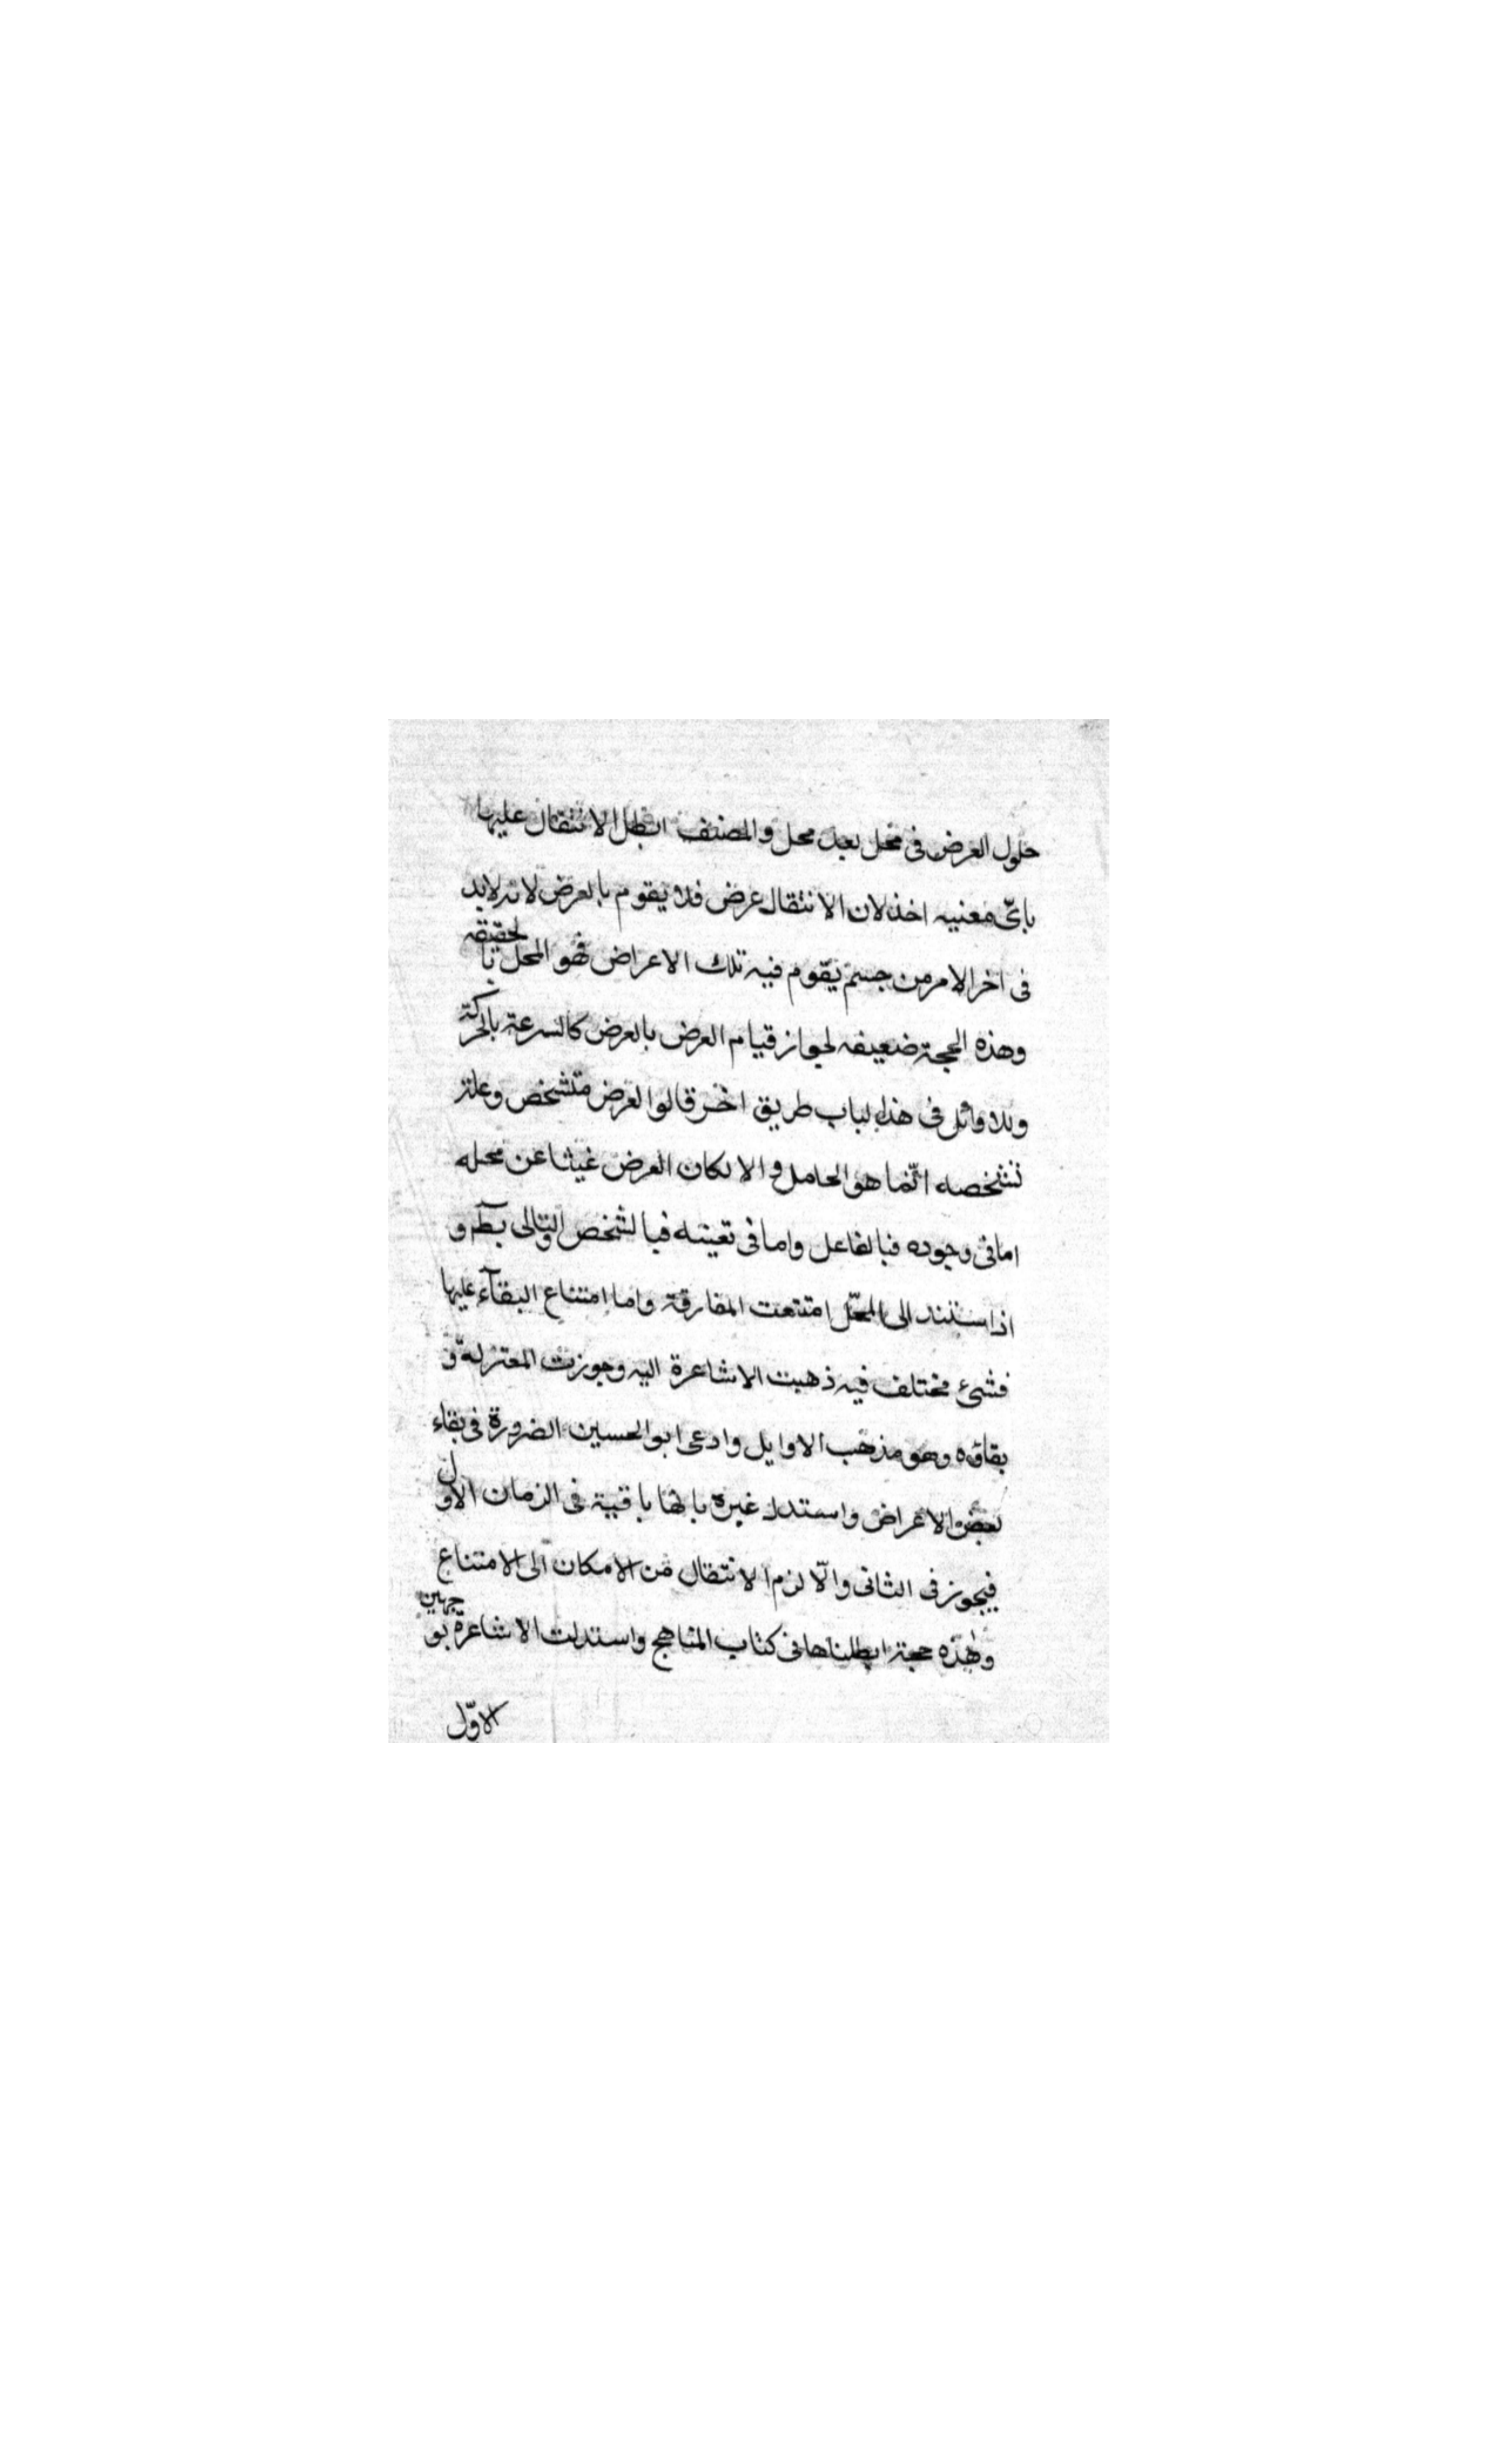 حلول العرض فى محل بعد محل والمصنف ابطل الانتقال عليها
باىّ معنيه اخذ لان الانتقال عرض فلا يقوم بالعرض لانه لابد
فى اخر الامر من جسم يقوم فيه تلك الاعراض فهو المحل بالحقيقه
وهذه الحجة ضعيفه لجواز قيام العرض بالعرض كالسرعة بالحركة
وللاوائل فى هذا الباب طريق اخر قالوا العرض متشخص وعلة
تشخصه انّما هو الحامل والا لكان العرض غنيا عن محله
اما فى وجوده فبالفاعل واما فى تعينه فبالشخص والتالى بط و
اذا ستند الى المحلّ امتنعت المفارقة واما امتناع البقآء عليها
فشىء مختلف فيه ذهبت الاشاعرة اليه وجوزت المعتزلة و
بقاؤه وهو مذهب الاوايل وادعى ابوالحسين الضرورة فى بقاء
بعض الاعراض واستدل غيره بانها باقية فى الزمان الاول
فيجوز فى الثانى والّا لزم الانتقال من الامكان الى الامتناع
وهذه حجة ابطلناها فى كتاب المناهج واستدلت الاشاعرة بوجهين
الاوّل